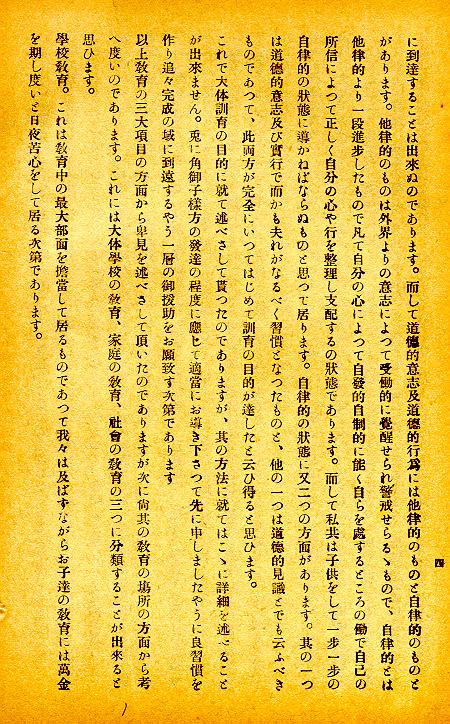 に到達することは出來ぬのであります。而して道德的意志及道德的行爲には他律的のものと自律的のものと
があります。他律的のものは外界よりの意志によつて受働的に覺醒せられ警戒せらるゝもので、自律的とは
他律的より一段進步したもので凡て自分の心によつて自發的自制的に能く自らを處するところの働で自己の
所信によつて正しく自分の心や行を整理し支配するの狀態であります。而して私共は子供をして一步一步の
自律的の狀態に導かねばならぬものと思つて居ります。自律的の狀態に又二つの方面があります。其の一つ
は道德的意志及び實行で而かも夫れがなるべく習慣となつたものと、他の一つは道德的見識とでも云ふべき
ものであつて、此両方が完全にいつてはじめて訓育の目的が達したと云ひ得ると思ひます。
これで大体訓育の目的に就て述べさして貰つたのでありますが、其の方法に就てはこゝに詳細を述べること
が出來ません。兎に角御子樣方の發達の程度に應じて適當にお導き下さつて先に申しましたやうに良習慣を
作り追々完成の域に到達するやう一層の御援助をお願致す次第であります
以上敎育の三大項目の方面から卑見を述べさして頂いたのでありますが次に尙其の敎育の場所の方面から考
へ度いのであります。これには大体學校の敎育、家庭の敎育、社會の敎育の三つに分類することが出來ると
思ひます。
學校敎育。これは敎育中の最大部面を擔當して居るものであつて我々は及ばずながらお子達の敎育には萬全
を期し度いと日夜苦心をして居る次第であります。
四